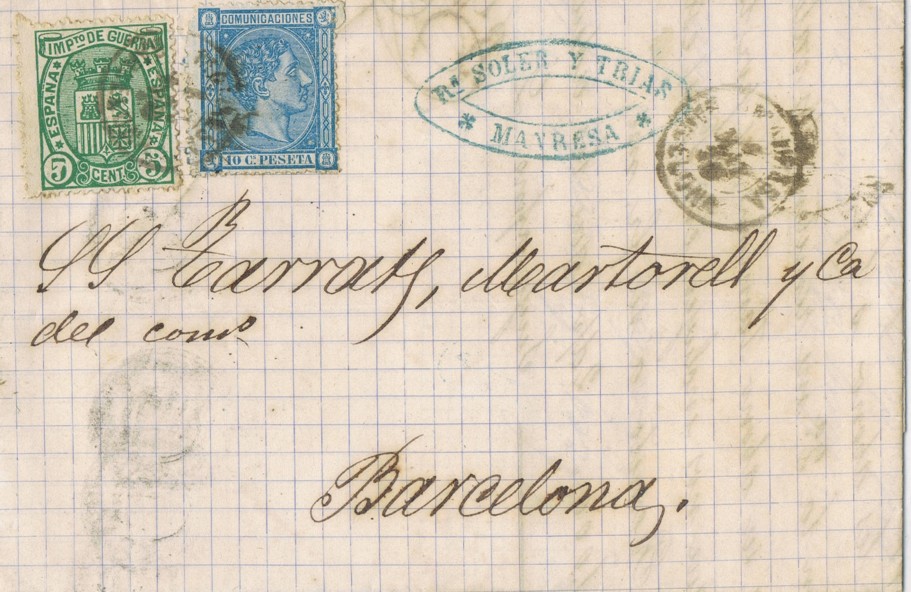 IMPTO DE GUERRA
ESPAÑA ESPAÑA
5 CENT. 5
COMUNICACIONES
10 C. PESETA
Rn SOLER Y TRIAS
MAVRESA
SS Tarrats, Martorell y Ca
del como
Barcelona.